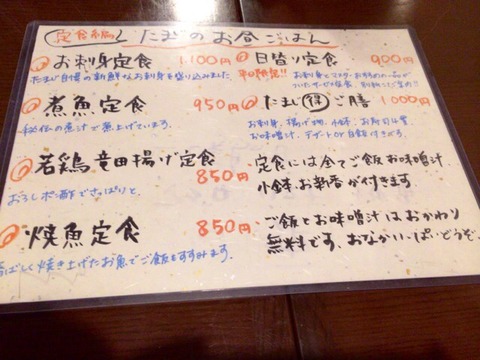 定食編 たまじのお昼ごはん
お刺身定食 1,100円
たまじ自慢の新鮮なお刺身を盛り込みました。
煮魚定食 950円
秘伝の煮汁で煮上げています。
若鶏竜田揚げ定食 850円
おろしポン酢でさっぱりと
焼魚定食 850円
香ばしく焼き上げたお魚でご飯もすすみます。
日替り定食 900円
平日限定!! お刺身とマスターおすすめの一品が
ついたサービス定食
たまじ得ご膳 1,000円
お刺身、揚げ物、小鉢、お寿司4貫
お味噌汁、デザートor自飯付きです。
定食には全てご飯お味噌汁
小鉢お新香が付きます
ご飯とお味噌汁はおかわり
無料です。おなかいっぱいどうぞ。